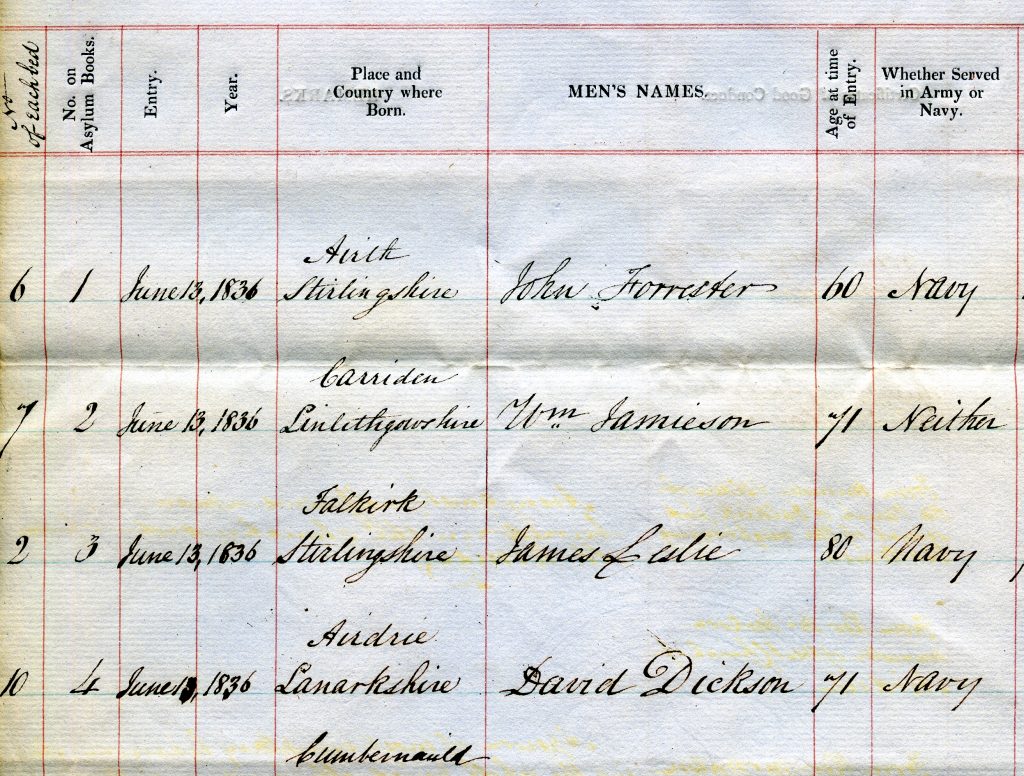 No of Each bed | No. on Asylum Books. | Entry. | Year. | Place and Country where Born. | MEN'S NAMES. | Age at time of Entry. | Whether Served in Army or Navy.
Airth
6 | 1 | June 13, | 1836 | Stirlingshire | John Forrester | 60 | Navy
Carriden
7 | 2 | June 13, | 1836 | Linlithgowshire | Wm Jamieson | 71 | Neither
Falkirk
2 | 3 | June 13, | 1836 | Stirlingshire | James Leslie | 80 | Navy
Airdrie
10 | 4 | June 13, | 1836 | Lanarkshire | David Dickson | 71 | Navy
Cumbernauld